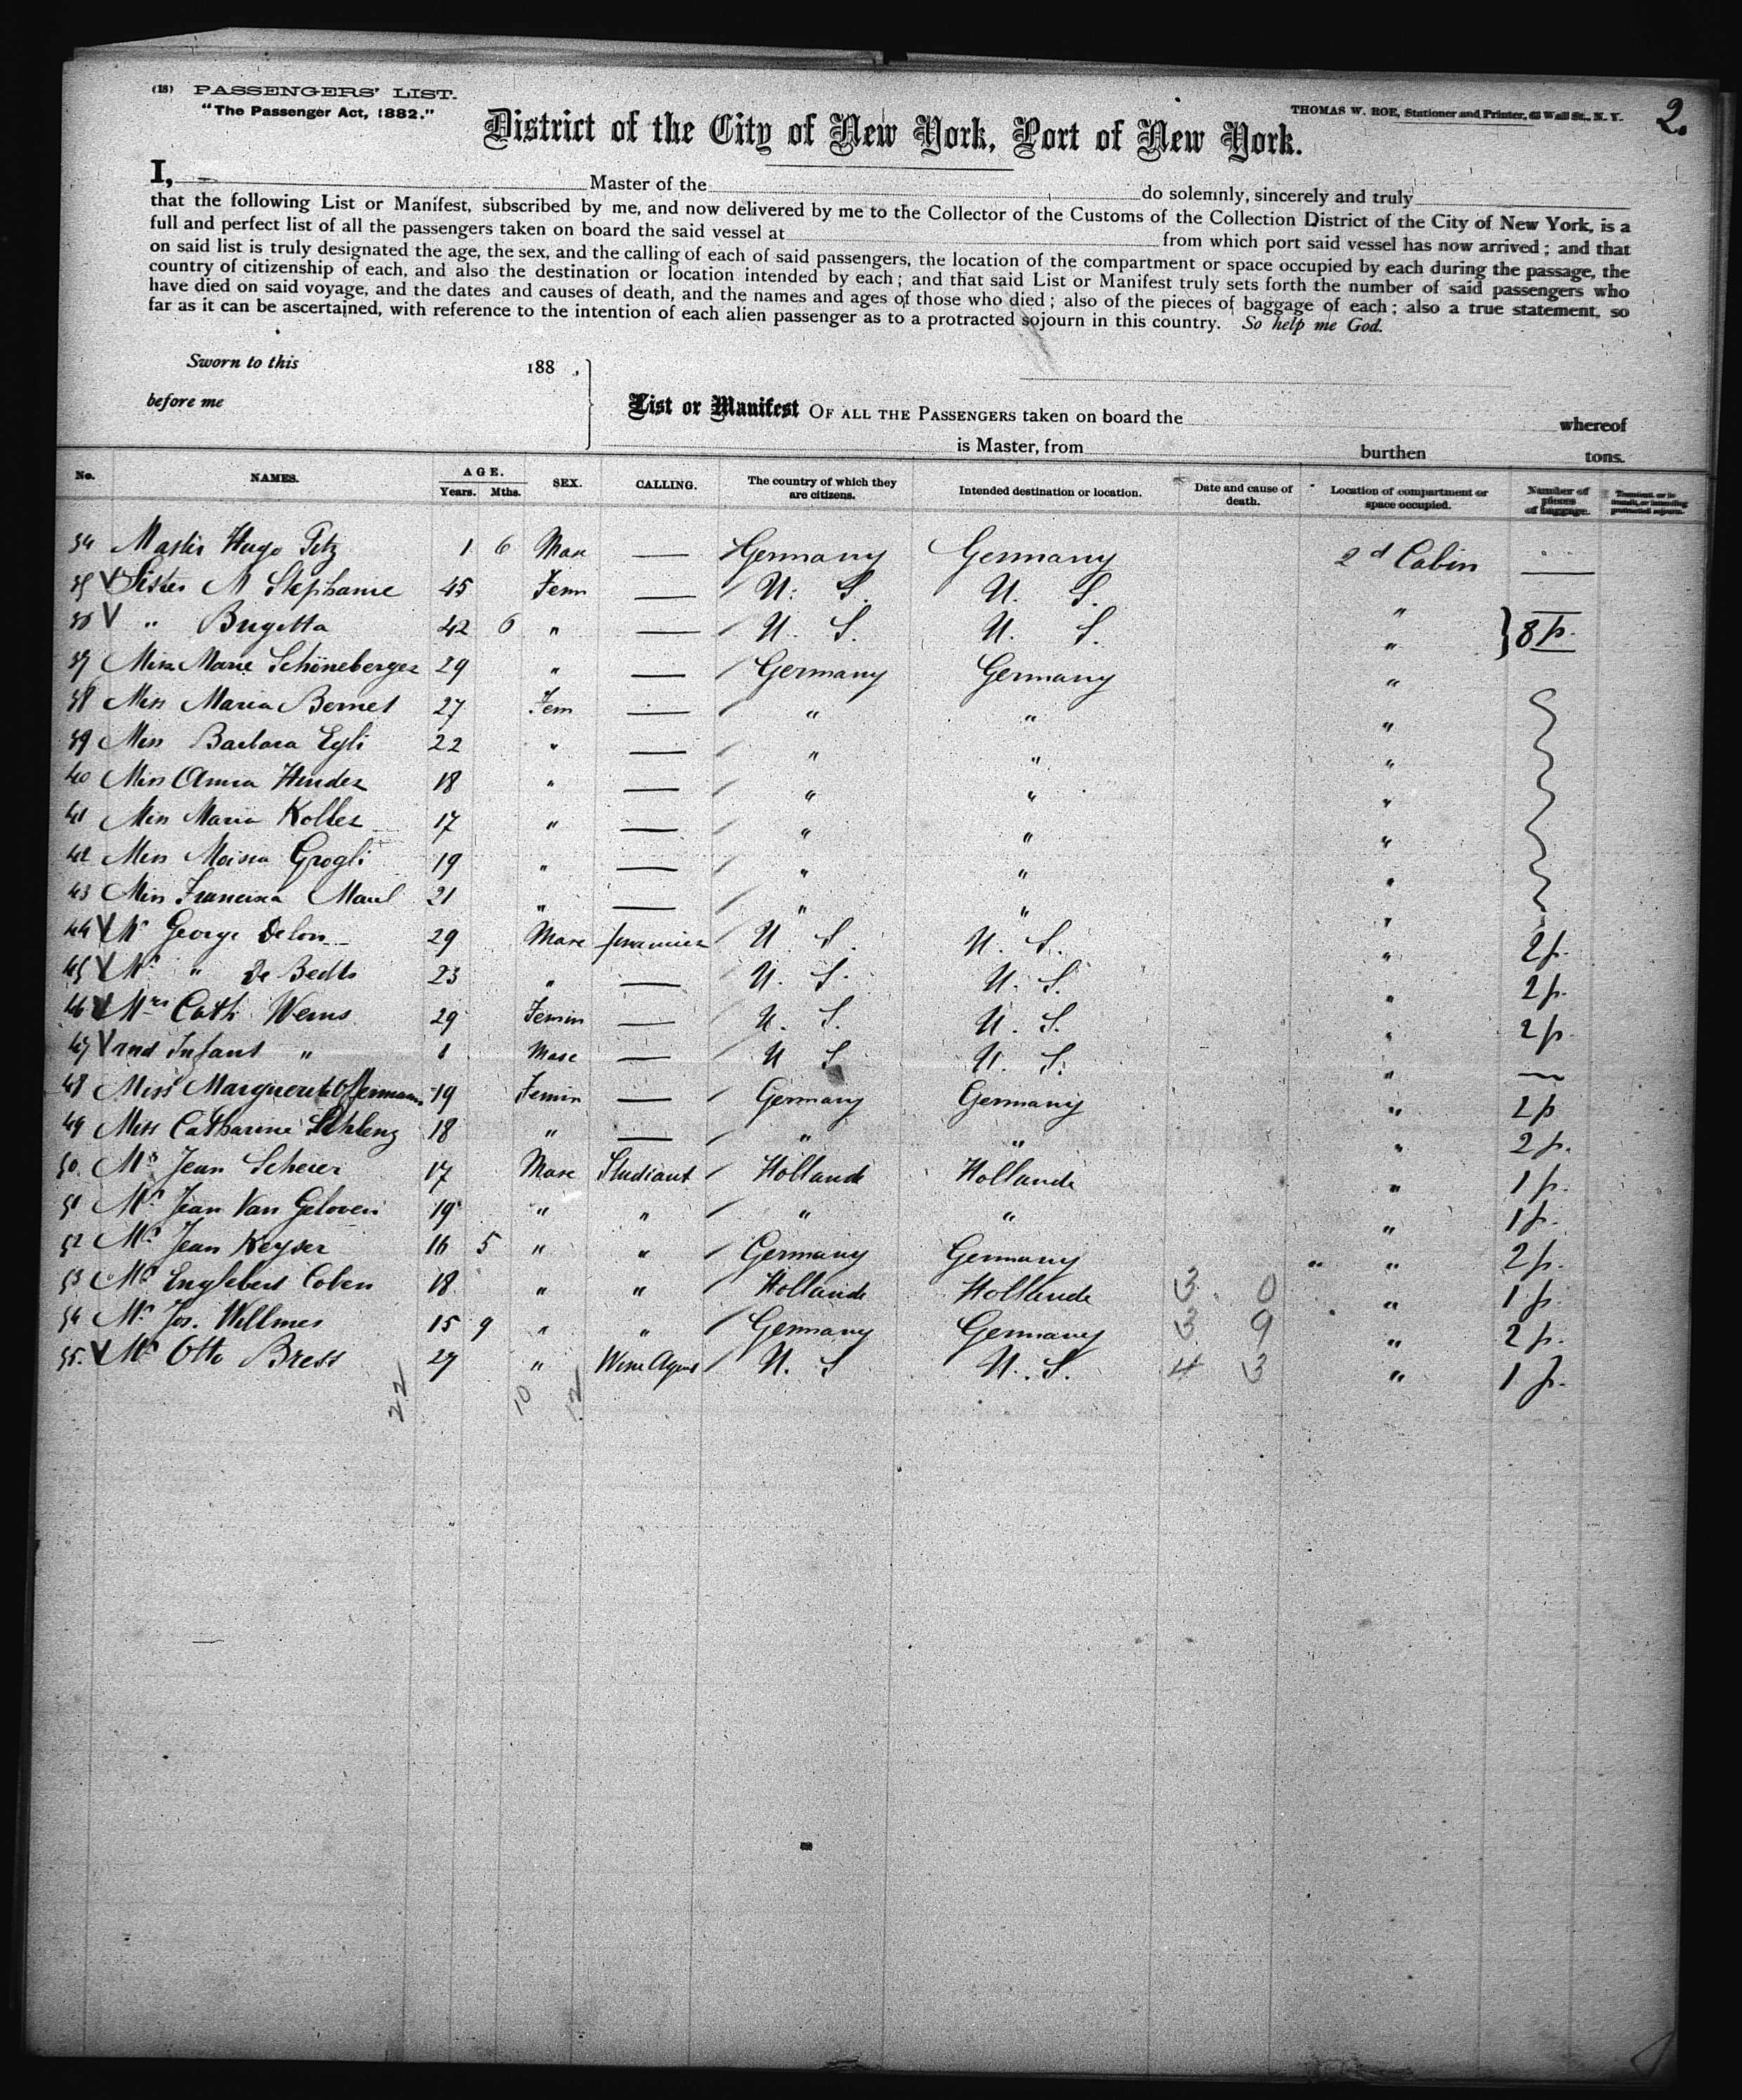 (18) PASSENGERS' LIST.
"The Passenger Act, 1882."
THOMAS W. ROE, Stationer and Printer, Wall St., N. Y.
2.
District of the City of New York, Port of New York.
I, Master of the do solemnly, sincerely and truly
that the following List or Manifest, subscribed by me, and now delivered by me to the Collector of the Customs of the Collection District of the City of New York, is a
full and perfect list of all the passengers taken on board the said vessel at from which port said vessel has now arrived; and that
on said list is truly designated the age, the sex, and the calling of each of said passengers, the location of the compartment or space occupied by each during the passage, the
country of citizenship of each, and also the destination or location intended by each; and that said List or Manifest truly sets forth the number of said passengers who
have died on said voyage, and the dates and causes of death, and the names and ages of those who died; also of the pieces of baggage of each; also a true statement, so
far as it can be ascertained, with reference to the intention of each alien passenger as to a protracted sojourn in this country. So help me God.
Sworn to this 188 ,
before me
List or Manifest OF ALL THE PASSENGERS taken on board the whereof
is Master, from burthen tons.
No. NAMES. AGE. Years. Mths. SEX. CALLING. The country of which they are citizens. Intended destination or location. Date and cause of death. Location of compartment or space occupied. Number of pieces of baggage.
34 Master Hugo Petz 1 6 Masc — Germany Germany 2d Cabin —
35 V Sister M Stephanie 45 Fem — U. S. U. S. " —
36 V " Brigetta 42 6 " — U. S. U. S. " } 8 p.
37 Miss Marie Schöneberger 29 " — Germany Germany "
38 Miss Maria Bernet 27 Fem — " " "
39 Miss Barbara Egli 22 " — " " "
40 Miss Anna 18 " — " " "
41 Miss Maria Koller 17 " — " " "
42 Miss Grogli 19 " — " " "
43 Miss Francisca 21 " — " " "
44 V Mr George Delon 29 Masc U. S. U. S. " 2 p.
45 V Mr " De Bedts 23 " — U. S. U. S. " 2 p.
46 V Mrs Cath 29 Femin — U. S. U. S. " 2 p.
47 V and Infant " 1 Masc — U S U. S. " —
48 Miss Marguerite 19 Femin — Germany Germany " 2 p
49 Miss Catharine 18 " — " " " 2 p.
50 Mr Jean Scheier 17 Masc Studiant Hollande Hollande " 1 p.
51 Mr Jean Van Geloven 19 " " " " " 1 p.
52 Mr Jean Keyser 16 5 " " Germany Germany " 2 p.
53 Mr Englebert Coben 18 " " Hollande Hollande 3 0 " 1 p.
54 Mr Jos. Willmes 15 9 " " Germany Germany 3 9 " 2 p.
55. V Mr Otto Brett 27 " Wine Agent U. S U. S. 4 3 " 1 p.
22 10 12